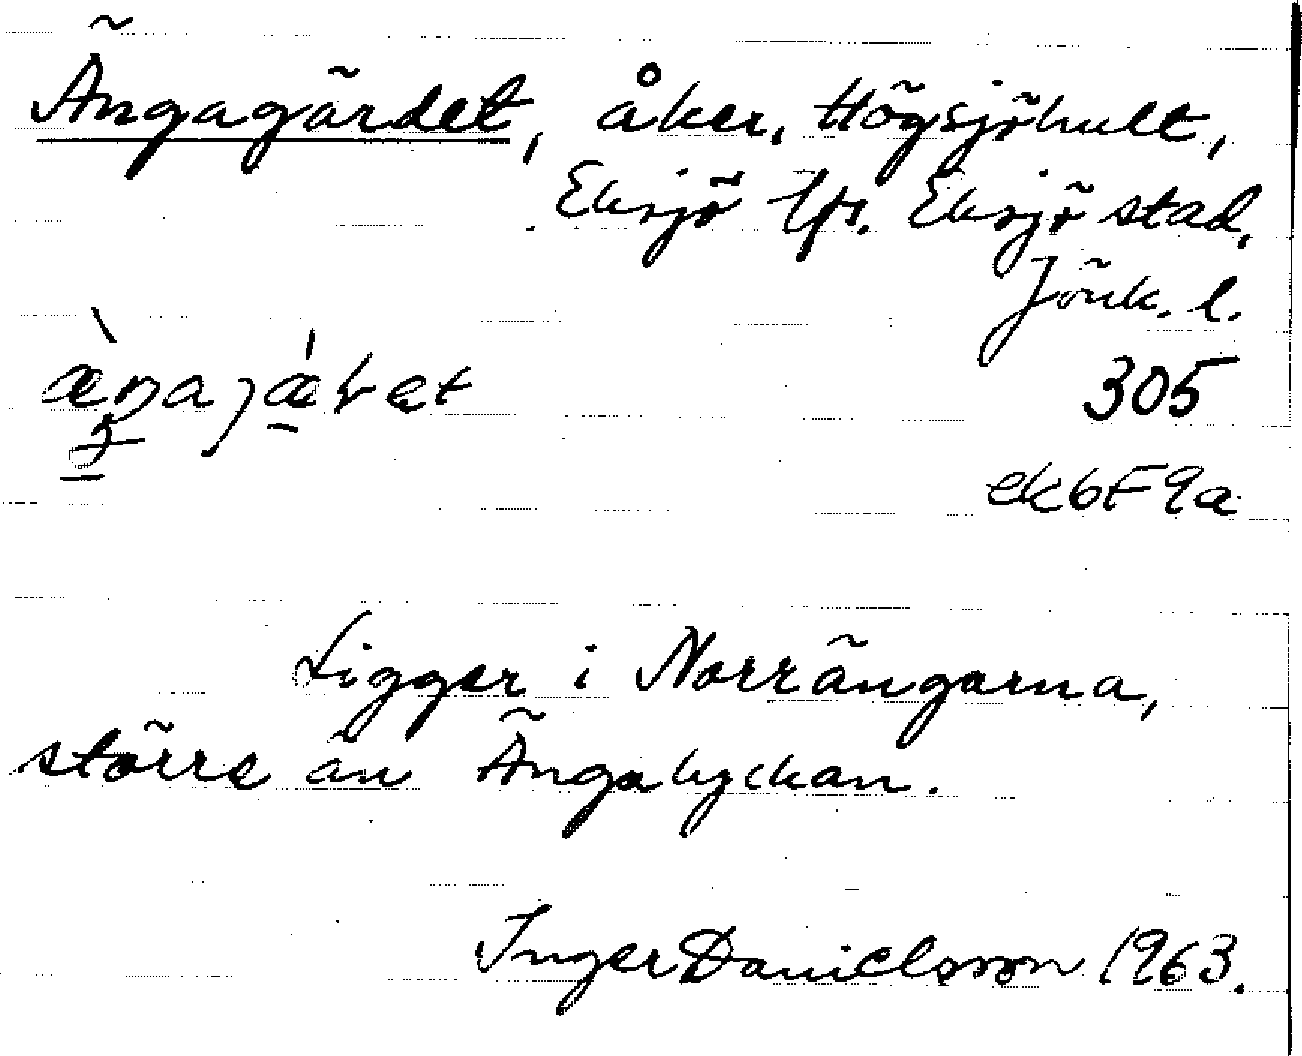 Ängagärdet, åker, Högsjöhult,
Eksjö lfs. Eksjö stad,
Jönk. l.
305
ek6F9a
Ligger i Norrängarna,
större än Ängalyckan.
Inger Danielsson 1963.